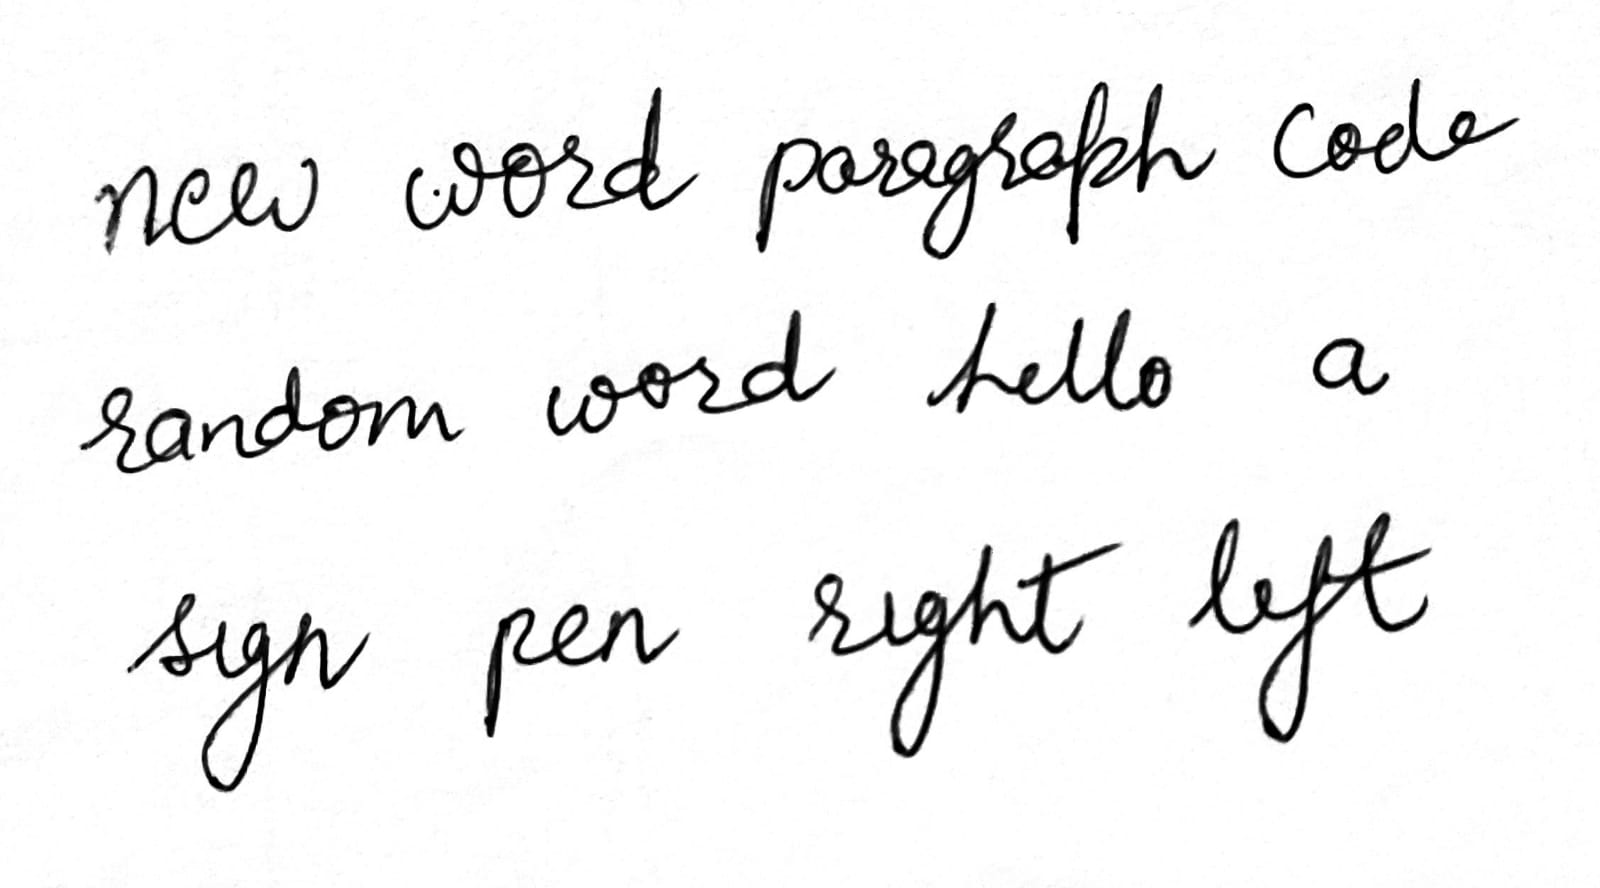 new word paragraph code
random word hello a
sign pen right left